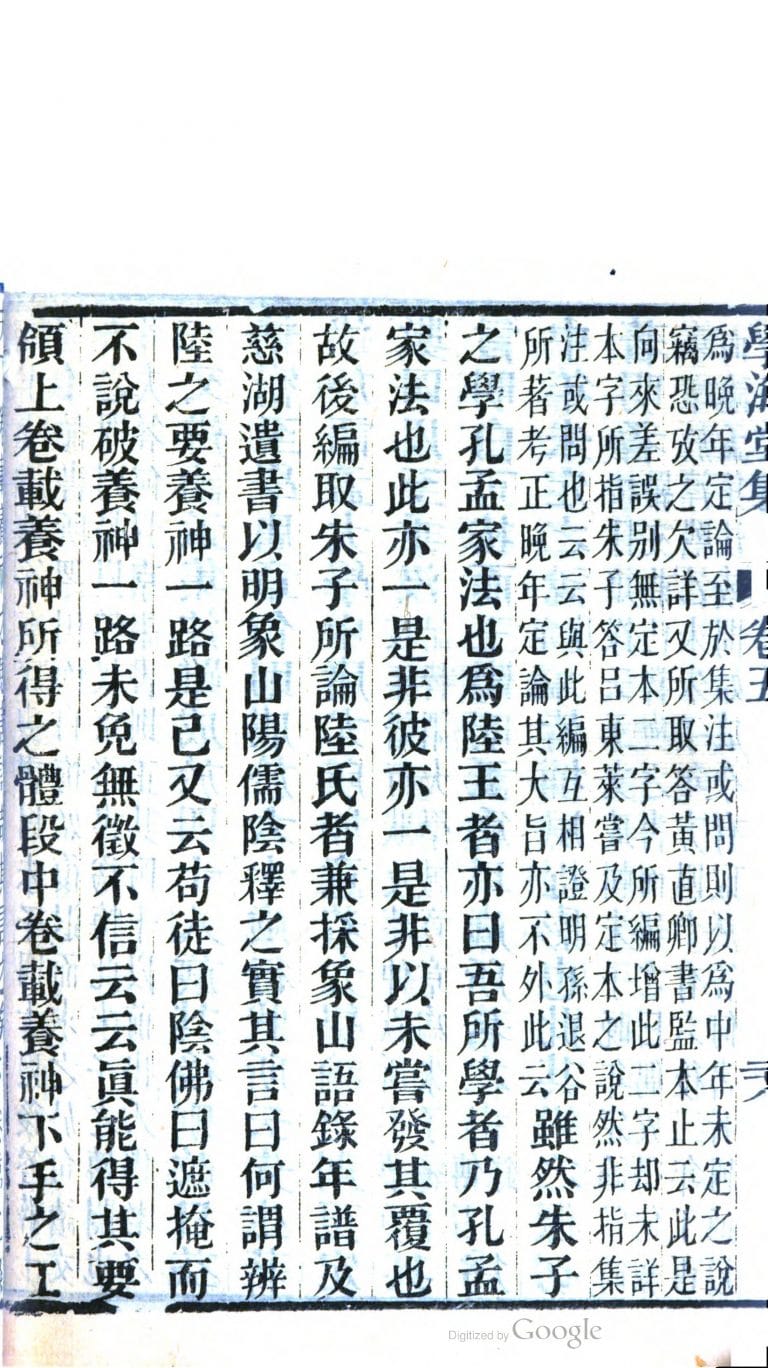 學海堂集 卷五 
爲晚年定論至於集注或問則以爲中年未定之說
竊恐攷之欠詳又所取答黃直卿書監本止云此是
向來差誤別無定本二字今所編增此二字却未詳
本字所指朱子答呂東萊嘗及定本之說然非指集
注或問也云云與此編互相證明孫退谷
所著考正晚年定論其大旨亦不外此云
雖然朱子
之學孔孟家法也爲陸王者亦曰吾所學者乃孔孟
家法也此亦一是非彼亦一是非以未嘗發其覆也
故後編取朱子所論陸氏者兼採象山語錄年譜及
慈湖遺書以明象山陽儒陰釋之實其言曰何謂辨
陸之要養神一路是已又云苟徒曰陰佛曰遮掩而
不說破養神一路未免無徵不信云云眞能得其要
領上卷載養神所得之體段中卷載養神下手之工
Digitized by Google